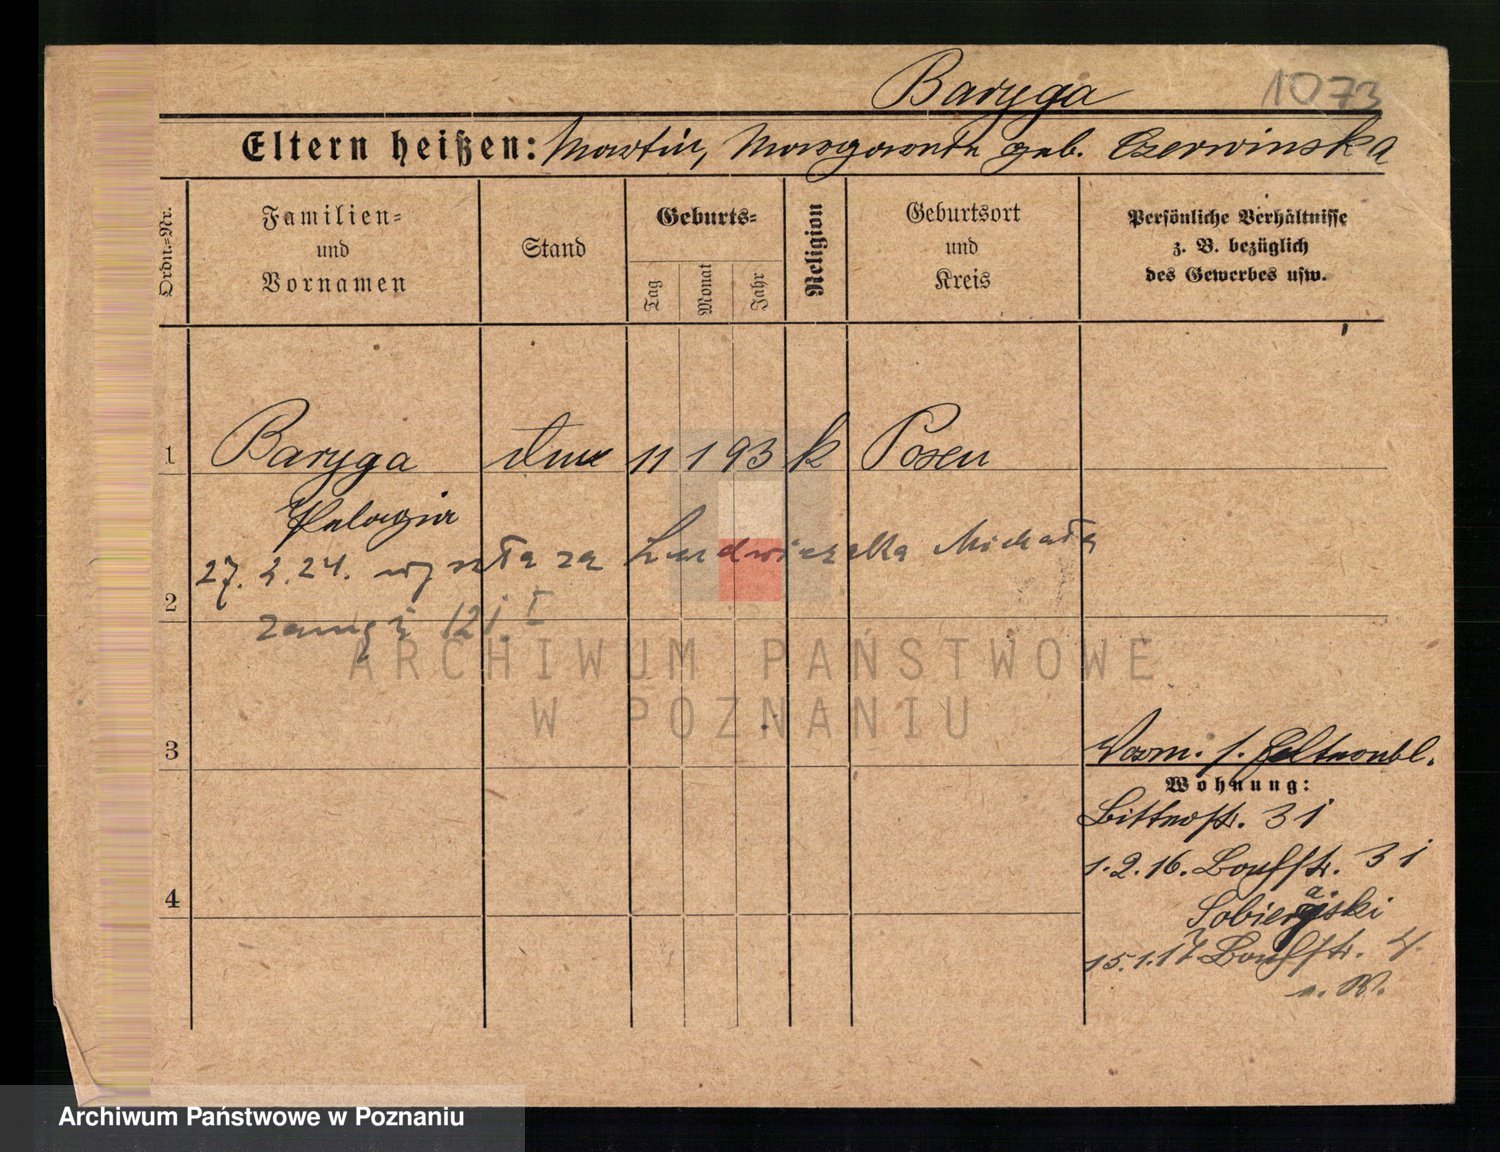 Baryga 1073
Eltern heißen: Martin, Margarethe geb. Czerwinska
Ordn.-Nr.
Familien-
und
Vornamen
Stand
Geburts-
Tag
Monat
Jahr
Religion
Geburtsort
und
Kreis
Persönliche Verhältnisse
z. B. bezüglich
des Gewerbes usw.
1 Baryga 11 1 93 k Posen
Pelagia
27. 2. 24. wyszła za Ludwiczaka Michała
2
zamąż 121. I
3
Wohnung:
Bittnerstr. 31
1. 2. 16. 31
4
Sobierajski
15. 1. 17
ARCHIWUM PAŃSTWOWE
W POZNANIU
Archiwum Państwowe w Poznaniu